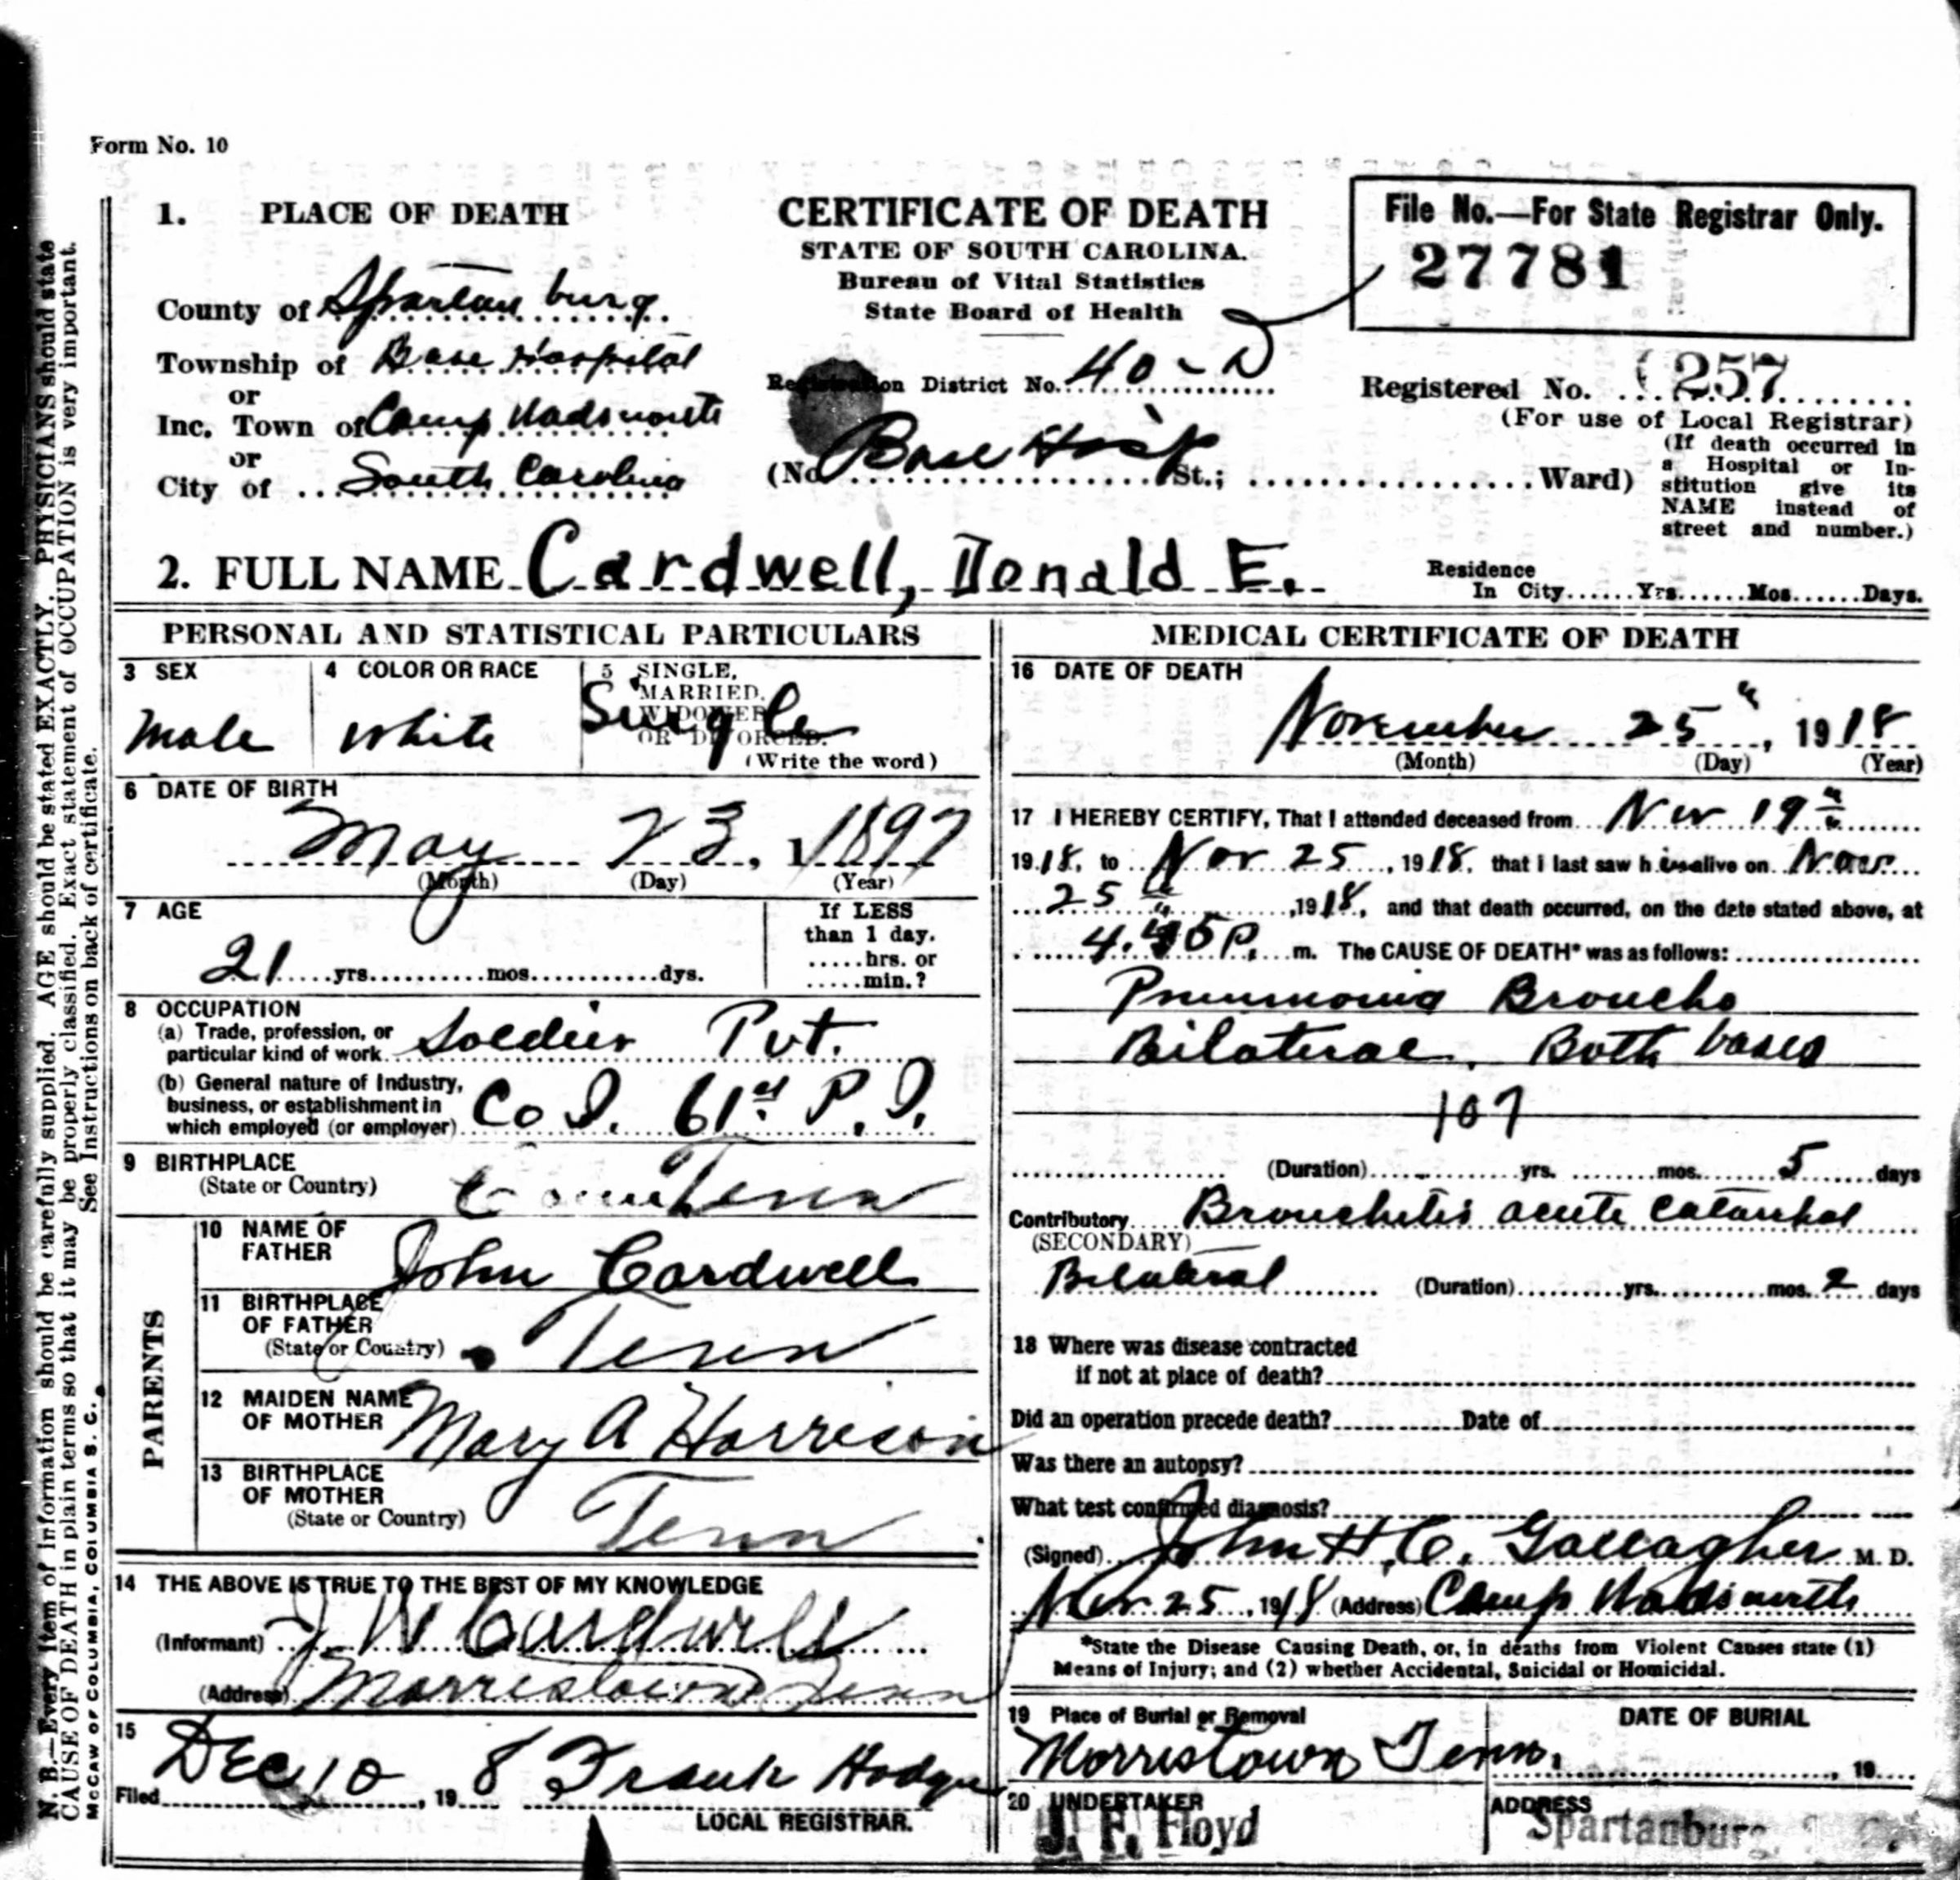 Form No. 10
1. PLACE OF DEATH
County of Spartanburg
Township of Base Hospital
or
Inc. Town of Camp Wadsworth
or
City of South Carolina
CERTIFICATE OF DEATH
STATE OF SOUTH CAROLINA.
Bureau of Vital Statistics
State Board of Health
Registration District No. 40-D
(No Base Hosp St.; Ward)
File No.—For State Registrar Only.
27781
Registered No. 257
(For use of Local Registrar)
(If death occurred in
a Hospital or In-
stitution give its
NAME instead of
street and number.)
2. FULL NAME Cardwell, Donald E.
Residence
In City......Yrs......Mos......Days.
PERSONAL AND STATISTICAL PARTICULARS
3 SEX
Male
4 COLOR OR RACE
White
5 SINGLE,
MARRIED,
WIDOWED
OR DIVORCED.
Single
(Write the word)
6 DATE OF BIRTH
May 23, 1 1897
(Month) (Day) (Year)
7 AGE
21 yrs. mos. dys.
If LESS
than 1 day.
.....hrs. or
.....min.?
8 OCCUPATION
(a) Trade, profession, or
particular kind of work Soldier Pvt.
(b) General nature of Industry,
business, or establishment in
which employed (or employer) Co I. 61st P. I.
9 BIRTHPLACE
(State or Country) Tenn
PARENTS
10 NAME OF
FATHER John Cardwell
11 BIRTHPLACE
OF FATHER
(State or Country) Tenn
12 MAIDEN NAME
OF MOTHER Mary A Harrison
13 BIRTHPLACE
OF MOTHER
(State or Country) Tenn
14 THE ABOVE IS TRUE TO THE BEST OF MY KNOWLEDGE
(Informant) J W Cardwell
(Address) Morristown Tenn
15
Filed Dec 10, 19 8 Frank Hodges
LOCAL REGISTRAR.
MEDICAL CERTIFICATE OF DEATH
16 DATE OF DEATH
November 25", 1918
(Month) (Day) (Year)
17 I HEREBY CERTIFY, That I attended deceased from Nov 19th
1918, to Nov 25, 1918, that I last saw him alive on Nov.
25th, 1918, and that death occurred, on the date stated above, at
4.45 P. m. The CAUSE OF DEATH* was as follows:
Pneumonia Broncho
Bilateral, Both bases
107
(Duration) yrs. mos. 5 days
Contributory Bronchitis acute catarrhal
(SECONDARY)
Bilateral (Duration) yrs. mos. 2 days
18 Where was disease contracted
if not at place of death?
Did an operation precede death? Date of
Was there an autopsy?
What test confirmed diagnosis?
(Signed) John H. C. Gallagher M. D.
Nov 25, 1918 (Address) Camp Wadsworth
*State the Disease Causing Death, or, in deaths from Violent Causes state (1)
Means of Injury; and (2) whether Accidental, Suicidal or Homicidal.
19 Place of Burial or Removal
Morristown Tenn.
DATE OF BURIAL
, 19
20 UNDERTAKER
J. F. Floyd
ADDRESS
Spartanburg
N. B.—Every item of information should be carefully supplied. AGE should be stated EXACTLY. PHYSICIANS should state
CAUSE OF DEATH in plain terms so that it may be properly classified. Exact statement of OCCUPATION is very important.
See Instructions on back of certificate.
McCAW OF COLUMBIA, COLUMBIA S. C.